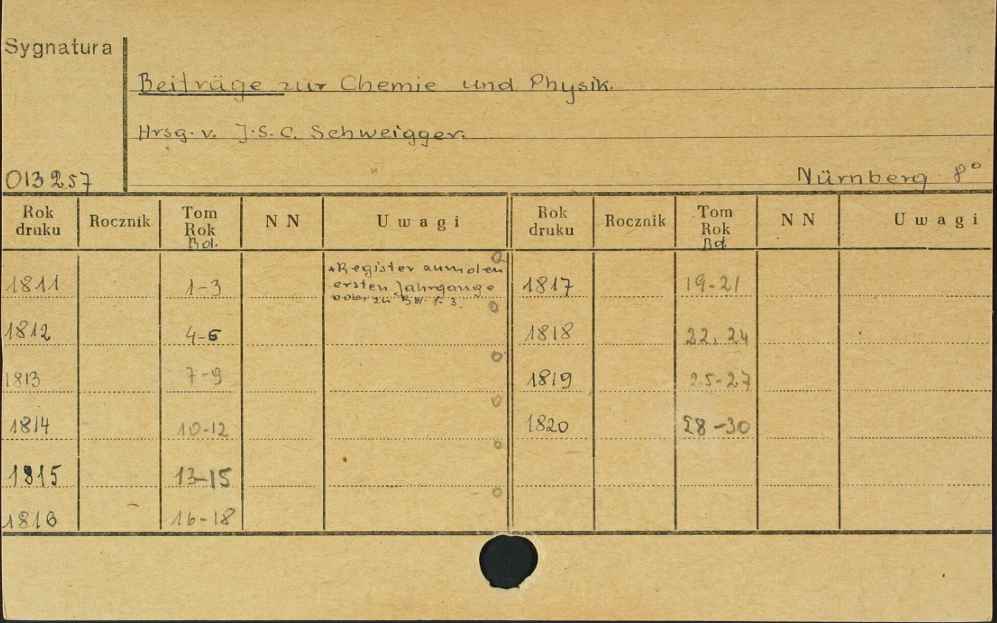 Sygnatura
Beiträge zur Chemie und Physik.
Hrsg. v. J. S. C. Schweigger.
013257
Nürnberg 8°
Rok druku Rocznik Tom Rok Bd. NN Uwagi Rok druku Rocznik Tom Rok Bd. NN Uwagi
1811 1-3 +Register zum den 1817 19-21
ersten Jahrgange
1812 4-6 1818 22, 24
1813 7-9 1819 25-27
1814 10-12 1820 28-30
1815 13-15
1816 16-18